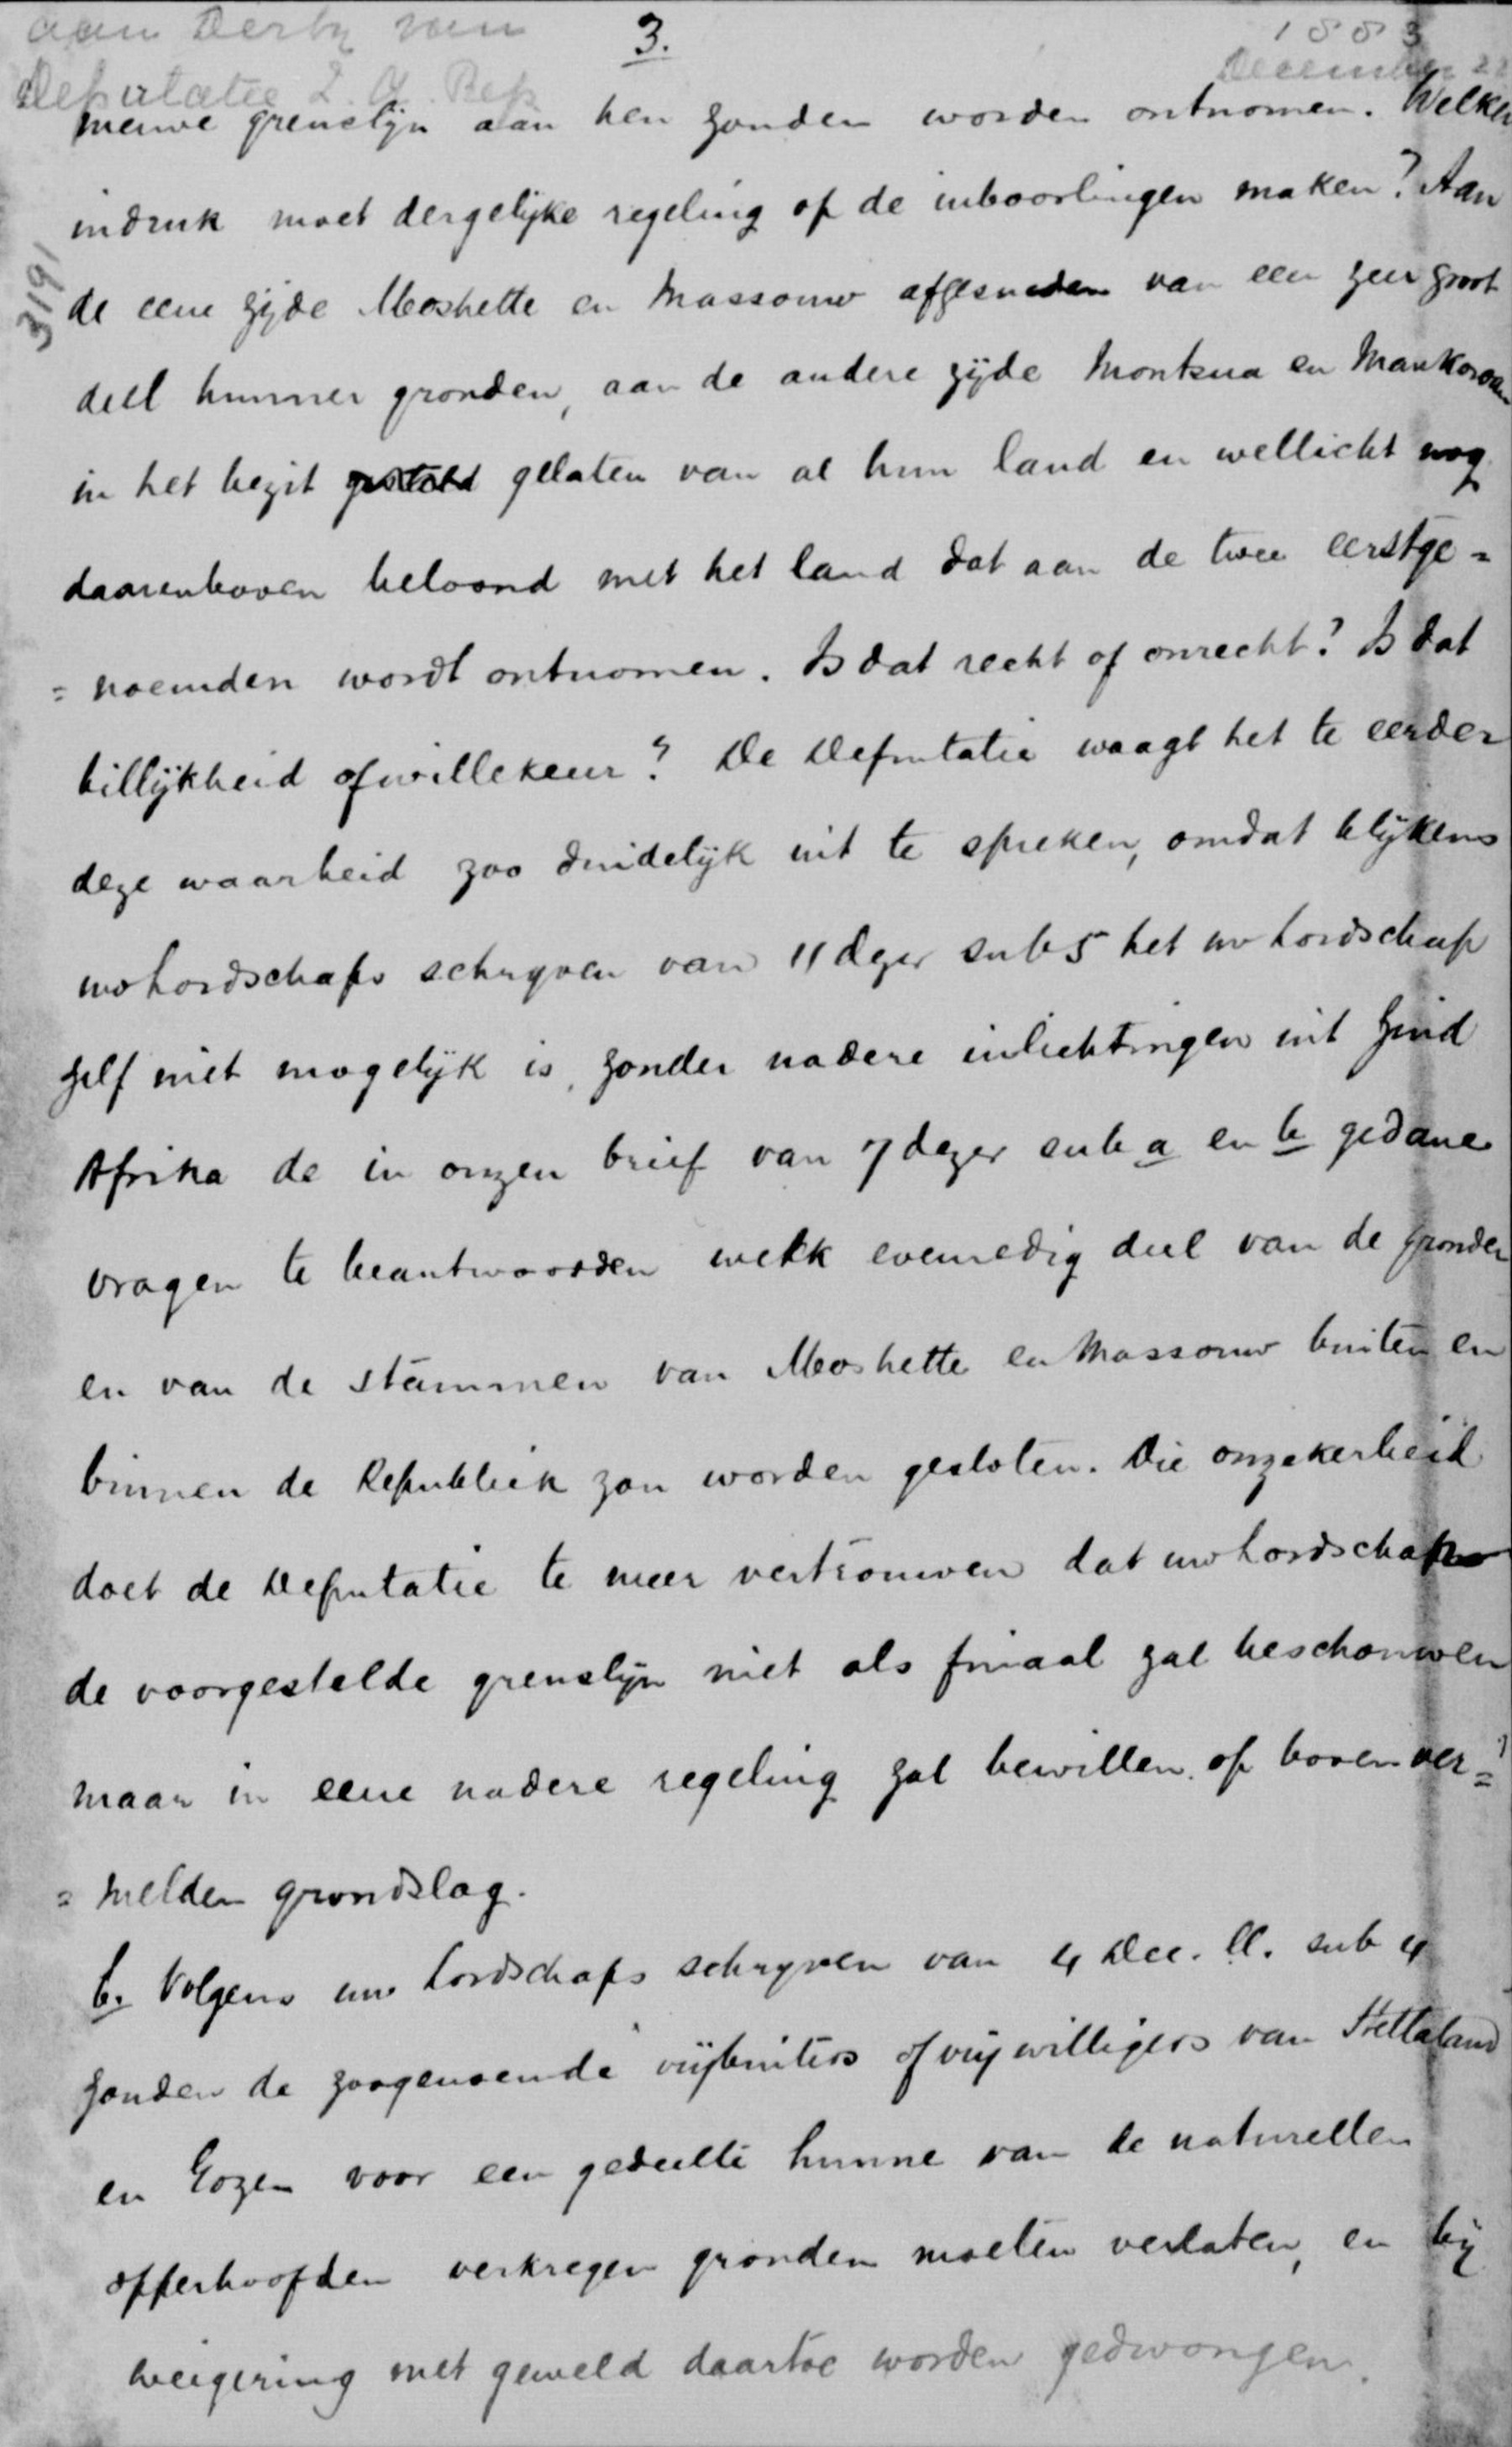 aan Derby van
Deputatie Z. A. Rep
3.
1883
December 22
3191
nieuwe grenslijn aan hen zouden worden ontnomen. Welken
indruk moet dergelijke regeling op de inboorlingen maken? Aan
de eene zijde Moshette en Massouw afgesneden van een zeer groot
deel hunner gronden, aan de andere zijde Montsua en Mankoroan
in het bezit gesteld gelaten van al hun land en wellicht nog
daarenboven beloond met het land dat aan de twee eerstge=
=noemden wordt ontnomen. Is dat recht of onrecht? Is dat
billijkheid of willekeur? De Deputatie waagt het te eerder
deze waarheid zoo duidelijk uit te spreken, omdat blijkens
uw Lordschaps schrijven van 11 dezer sub 5 het uw Lordschap
zelf niet mogelijk is, zonder nadere inlichtingen uit Zuid
Afrika de in onzen brief van 7 dezer sub a en b gedane
vragen te beantwoorden welk evenredig deel van de gronden
en van de stammen van Moshette en Massouw buiten en
binnen de Republiek zou worden gesloten. Die onzekerheid
doet de Deputatie te meer vertrouwen dat uw Lordschap
de voorgestelde grenslijn niet als finaal zal beschouwen
maar in eene nadere regeling zal bewillen op bovenver=
=melden grondslag.
b. Volgens uw Lordschaps schrijven van 4 Dec. ll. sub 4
zouden de zoogenoemde vrijbuiters of vrijwilligers van Stellaland
en Gozen voor een gedeelte hunne van de naturellen
opperhoofden verkregen gronden moeten verlaten, en bij
weigering met geweld daartoe worden gedwongen.